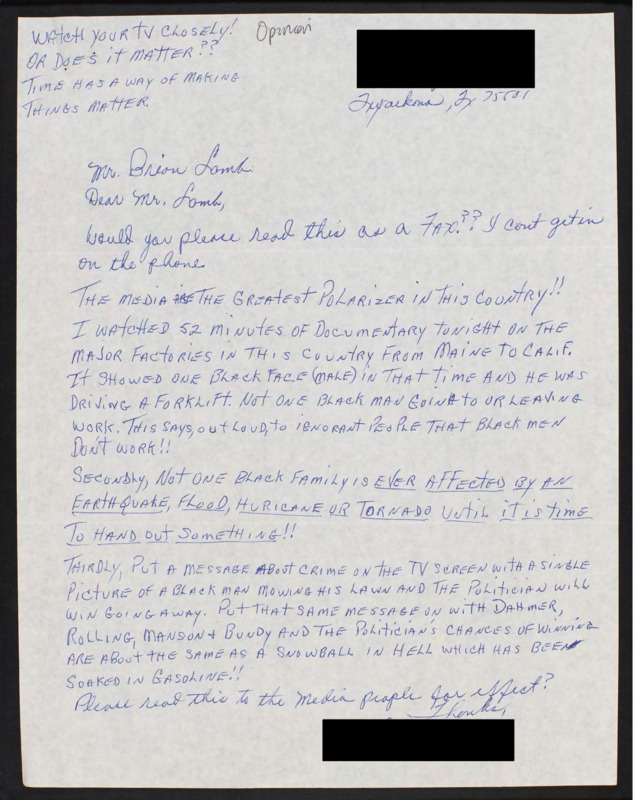 WATCH YOUR TV CLOSELY!
Opinion
OR DOES IT MATTER??
TIME HAS A WAY OF MAKING
THINGS MATTER.
Texarkana, Tx 75501
Mr. Brian Lamb.
Dear Mr. Lamb,
Would you please read this as a FAX?? I cont get in
on the phone.
THE MEDIA IS THE GREATEST POLARIZER IN THIS COUNTRY!!
I WATCHED 52 MINUTES OF DOCUMENTARY TONIGHT ON THE
MAJOR FACTORIES IN THIS COUNTRY FROM MAINE TO CALIF.
IT SHOWED ONE BLACK FACE (MALE) IN THAT TIME AND HE WAS
DRIVING A FORKLIFT. NOT ONE BLACK MAN GOING TO OR LEAVING
WORK. THIS SAYS, OUT LOUD, TO IGNORANT PEOPLE THAT BLACK MEN
DON'T WORK!!
SECONDLY, NOT ONE BLACK FAMILY IS EVER AFFECTED BY AN
EARTHQUAKE, FLOOD, HURICANE OR TORNADO UNTIL IT IS TIME
TO HAND OUT SOMETHING!!
THIRDLY, PUT A MESSAGE ABOUT CRIME ON THE TV SCREEN WITH A SINGLE
PICTURE OF A BLACK MAN MOWING HIS LAWN AND THE POLITICIAN WILL
WIN GOING AWAY. PUT THAT SAME MESSAGE ON WITH DAHMER,
ROLLING, MANSON & BUNDY AND THE POLITICIAN'S CHANCES OF WINNING
ARE ABOUT THE SAME AS A SNOWBALL IN HELL WHICH HAS BEEN
SOAKED IN GASOLINE!!
Please read this to the Media people for effect?
Thanks,